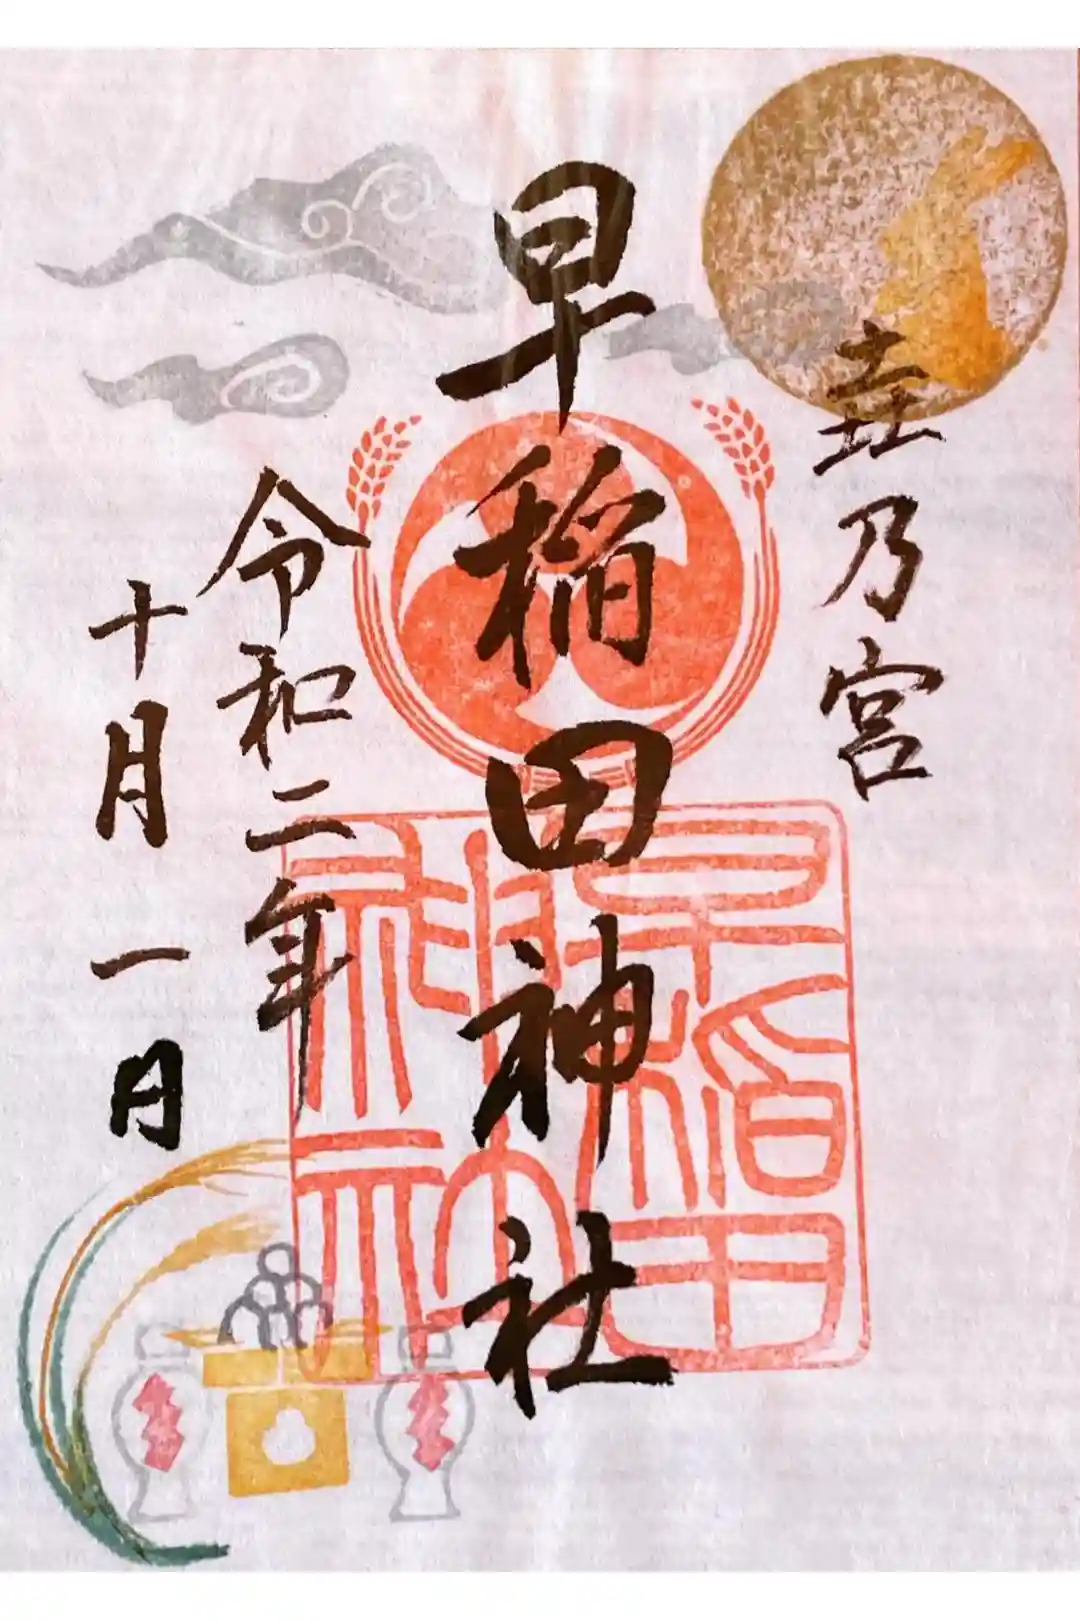 垚乃宮
早稲田神社
令和二年
十月一日
早稲田
神社